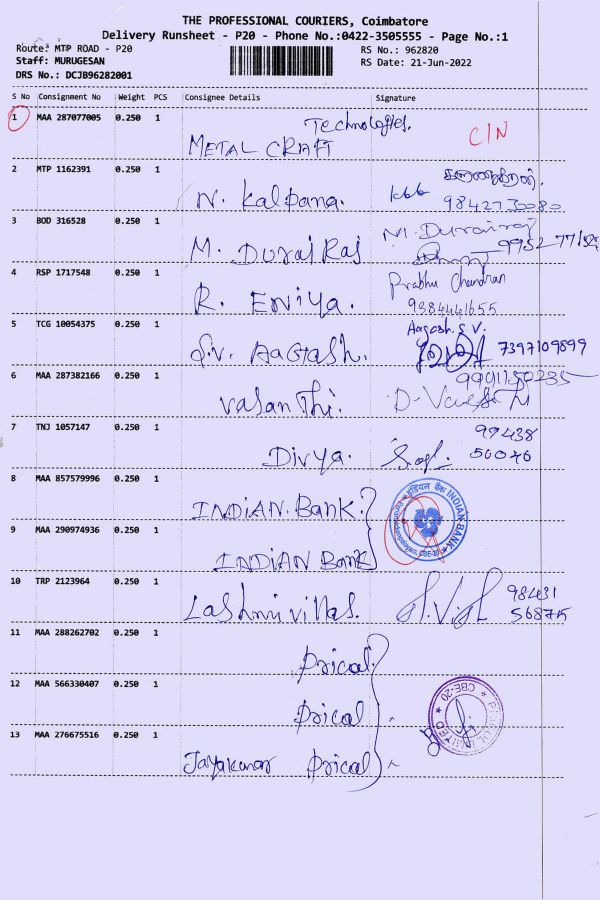 THE PROFESSIONAL COURIERS, Coimbatore
Delivery Runsheet - P20 - Phone No.:0422-3505555 - Page No.:1
Route: MTP ROAD - P20
RS No.: 962820
Staff: MURUGESAN
RS Date: 21-Jun-2022
DRS No.: DCJB96282001
S No Consignment No Weight PCS Consignee Details Signature
1 MAA 287077005 0.250 1 Technologies.
METAL CRAFT
C/N
2 MTP 1162391 0.250 1
N. Kalpana.
9842730080
3 BOD 316528 0.250 1
M. DURAI RAJ M. Durairaj
4 RSP 1717548 0.250 1 Prabhu Chandran
R. ENiYA. 9384441655
5 TCG 10054375 0.250 1 Aagash.S.V.
S.V. AAGASH. 7397109899
6 MAA 287382166 0.250 1
Vasanthi.
7 TNJ 1057147 0.250 1
Divya. 56046
8 MAA 857579996 0.250 1
INDIAN. Bank. इंडियन बैंक INDIAN BANK
9 MAA 290974936 0.250 1
INDIAN Bank
10 TRP 2123964 0.250 1 98431
Lashmi villas. 56875
11 MAA 288262702 0.250 1
Prical.
12 MAA 566330407 0.250 1
Prical CBE-20
13 MAA 276675516 0.250 1
Jayakumar Prical